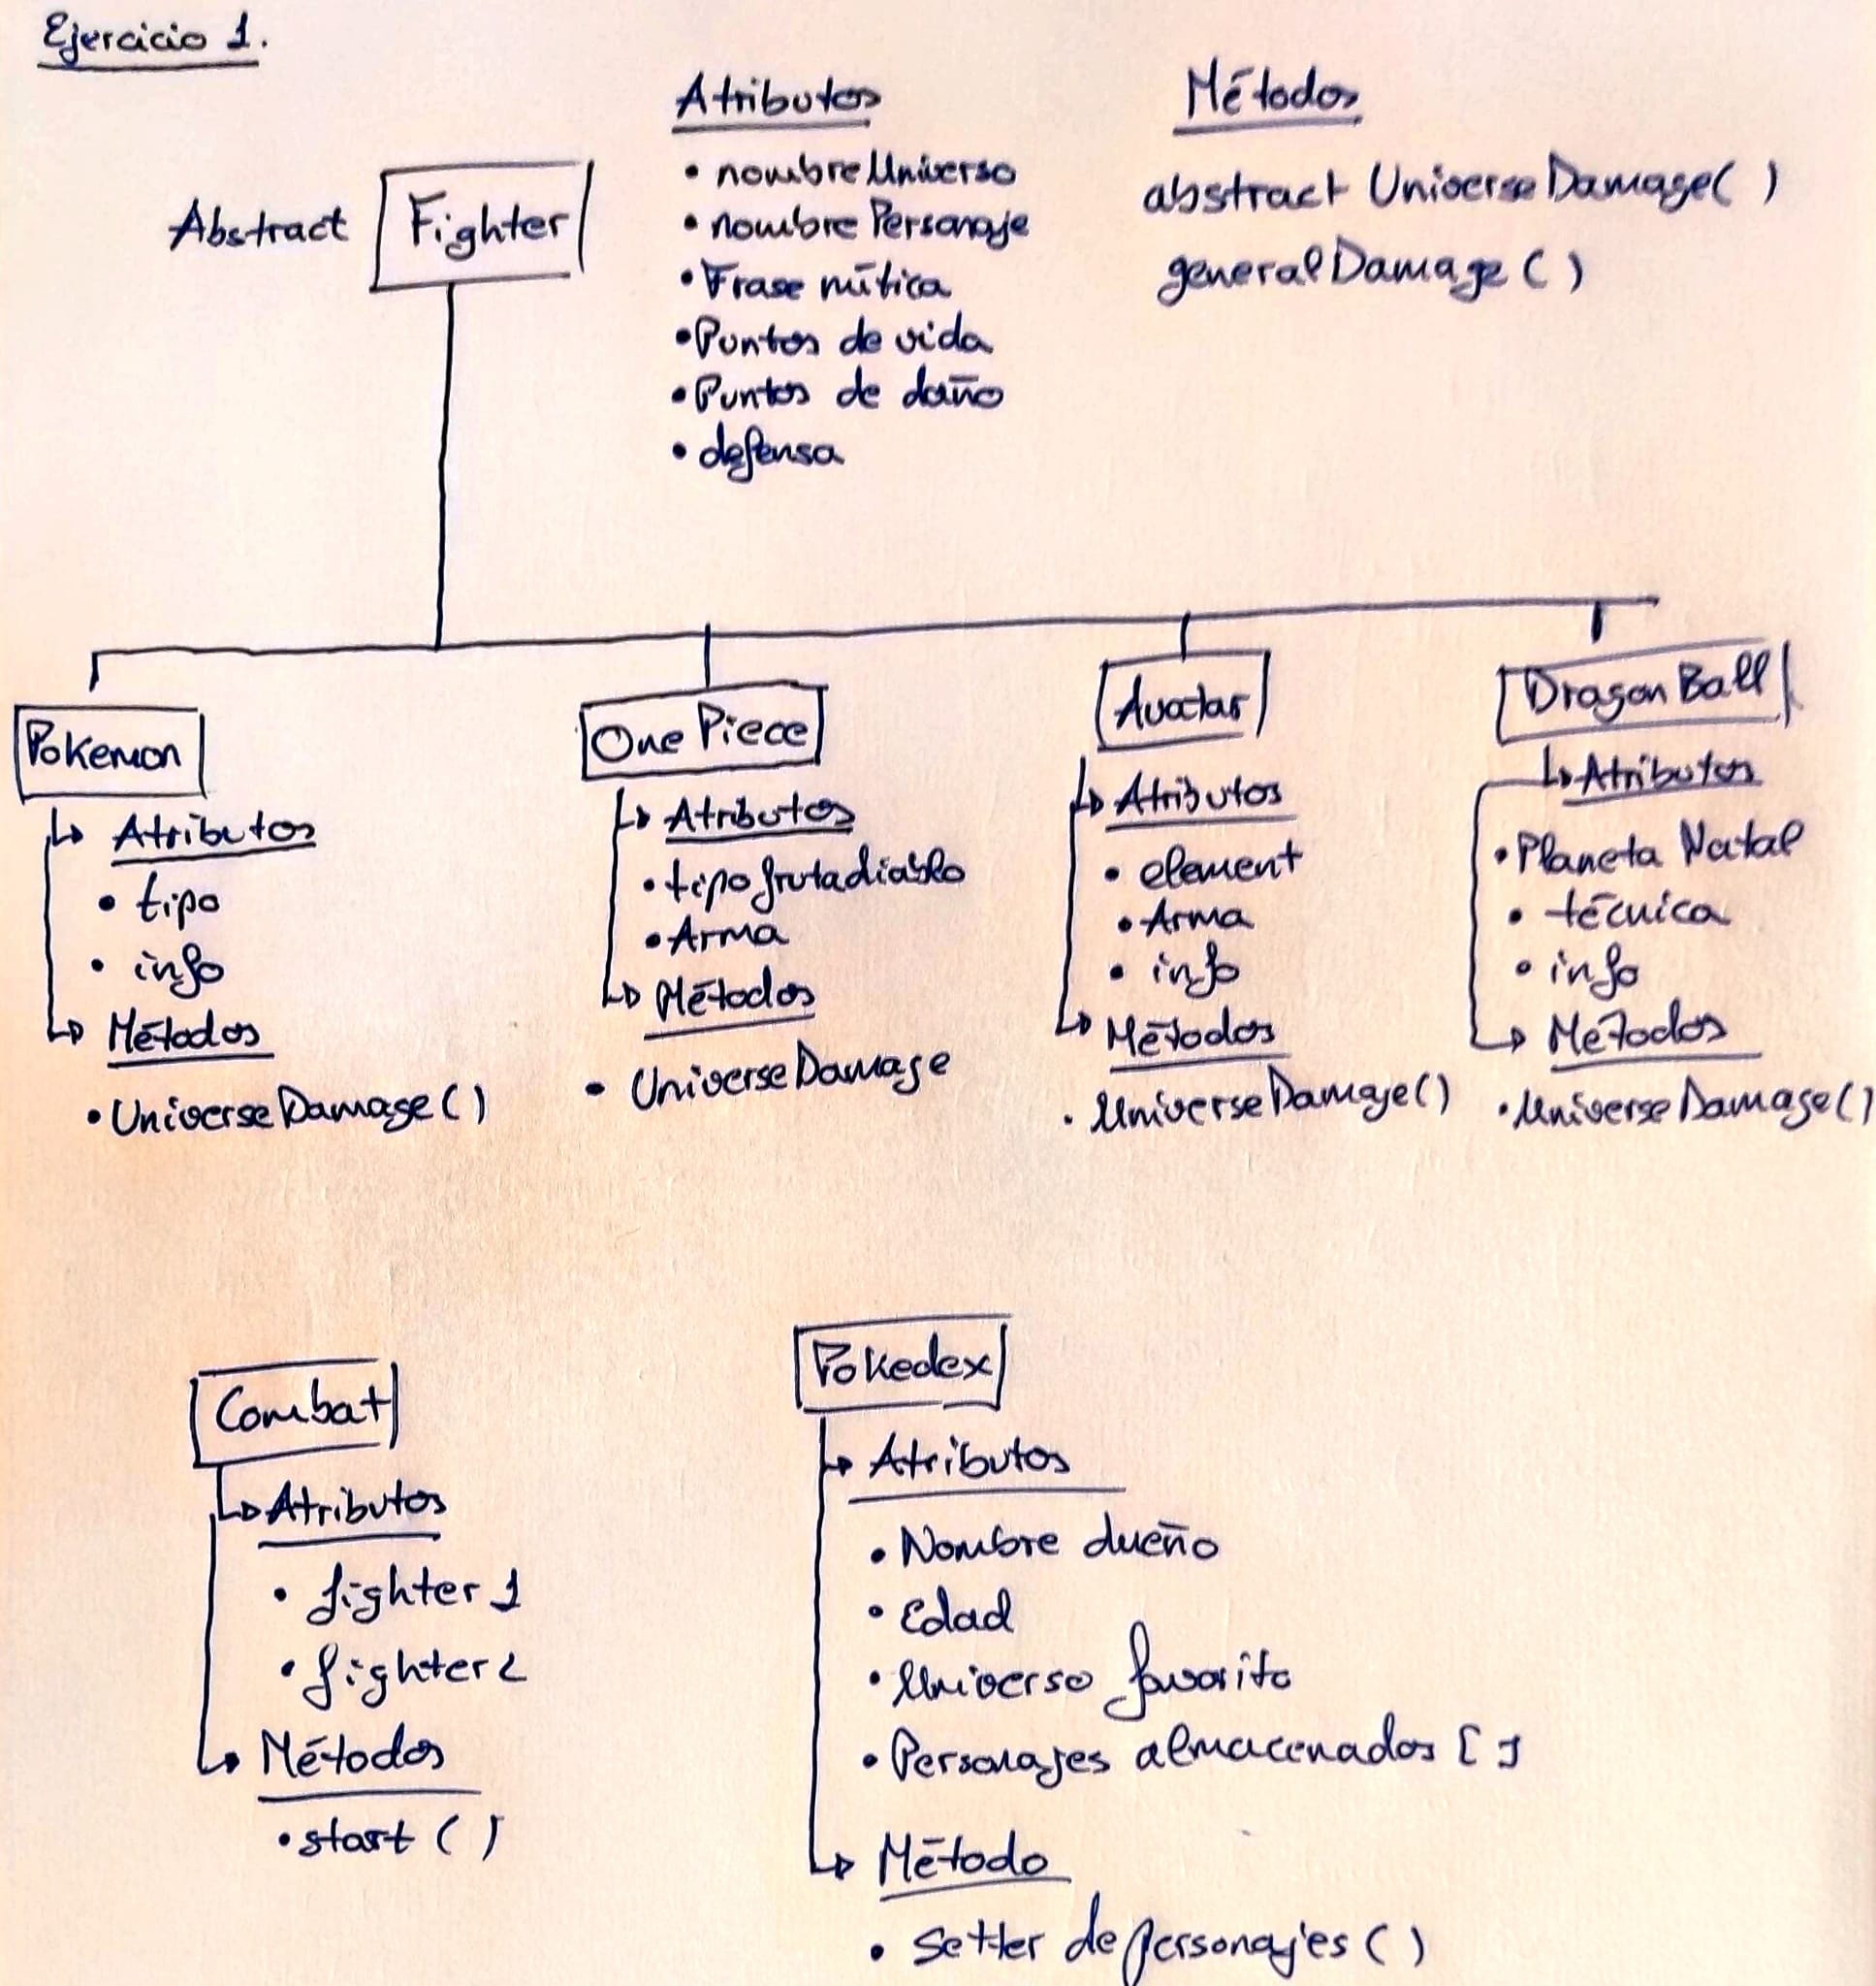 Ejercicio 1.
Abstract Fighter
Atributos
• nombreUniverso
• nombre Personaje
• Frase mítica
• Puntos de vida
• Puntos de daño
• defensa
Métodos
abstract UniverseDamage( )
generalDamage ( )
Pokemon
Atributos
• tipo
• info
Métodos
• UniverseDamage ( )
One Piece
Atributos
• tipo frutadiablo
• Arma
Métodos
• UniverseDamage
Avatar
Atributos
• element
• Arma
• info
Métodos
• UniverseDamage ( )
Dragon Ball
Atributos
• Planeta Natal
• técnica
• info
Métodos
• UniverseDamage ( )
Combat
Atributos
• fighter 1
• fighter 2
Métodos
• start ( )
Pokedex
Atributos
• Nombre dueño
• Edad
• Universo favorito
• Personajes almacenados [ ]
Método
• Setter de personajes ( )